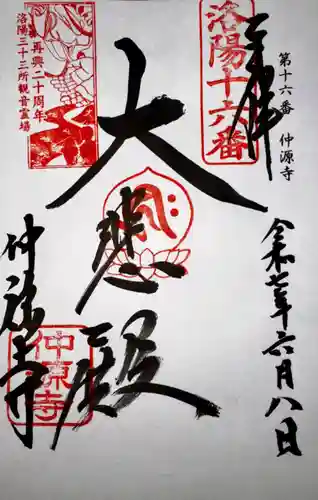 奉拝
第十六番　仲源寺
洛陽十六番
令和七年六月八日
大悲殿
再興二十周年
洛陽三十三所観音霊場
仲源寺
仲源寺